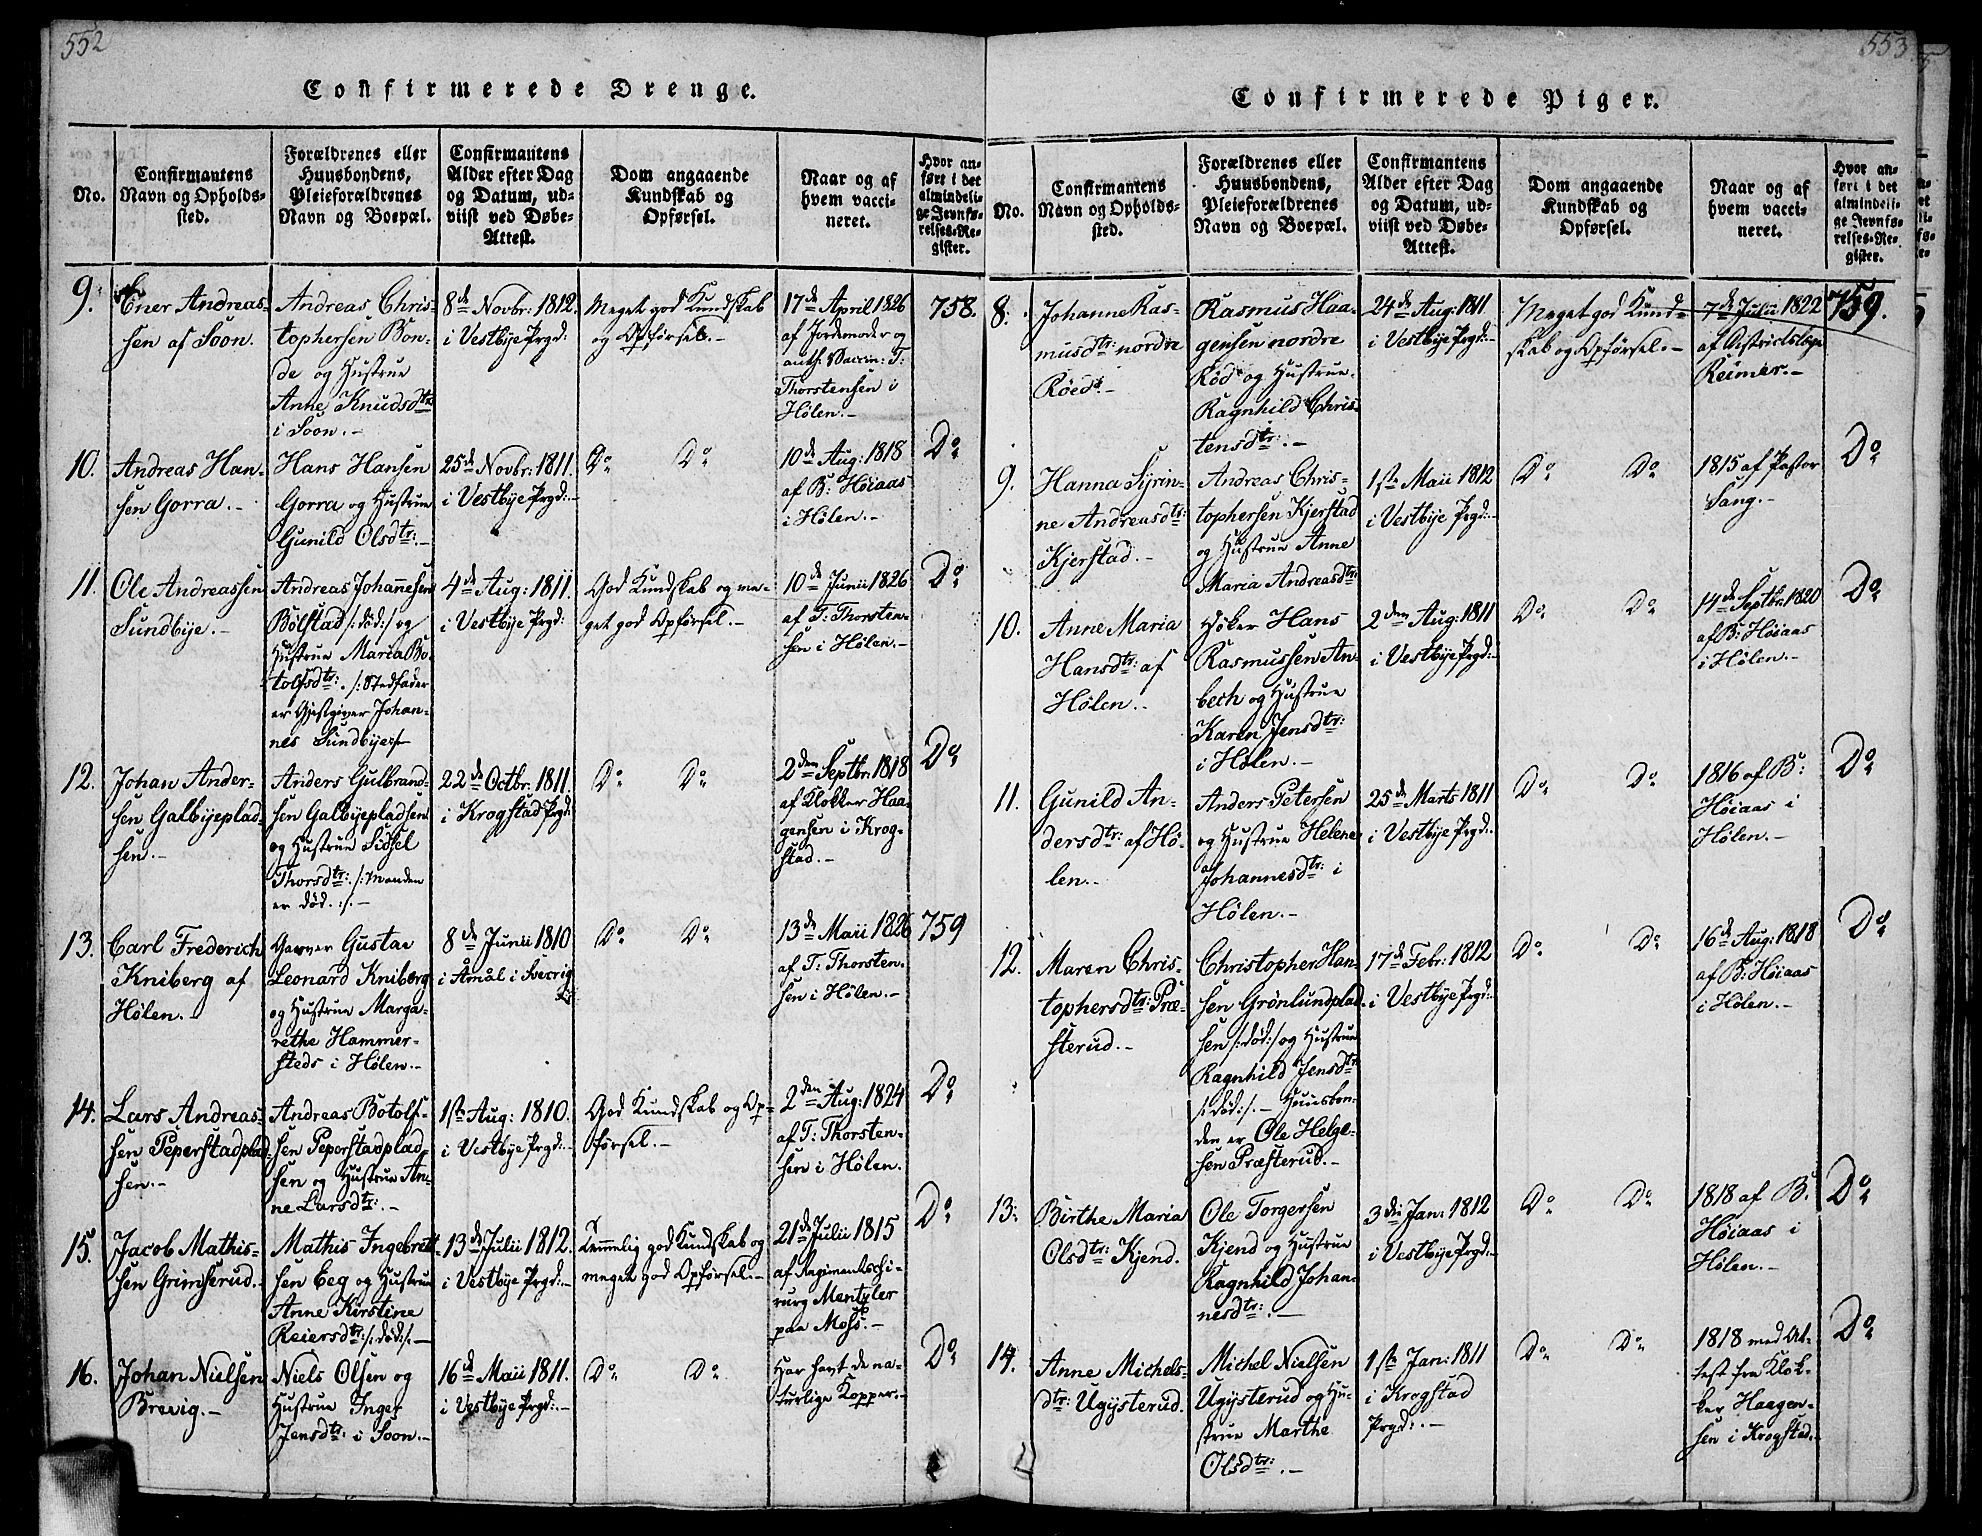 552
Confirmerede Drenge.
No.
Confirmantens
Navn og Opholds-
sted.
Forældrenes eller
Huusbondens,
Pleieforældrenes
Navn og Boepæl.
Confirmantens
Alder efter Dag
og Datum, ud-
viist ved Døbe-
Attest.
Dom angaaende
Kundskab og
Opførsel.
Naar og af
hvem vacci-
neret.
Hvor an-
ført i det
almindeli-
ge Jevnfø-
relses-Re-
gister.
9.
Ener Andreas-
sen af Soon.
Andreas Chris-
tophersen Bon-
de og Hustrue
Anne Knudsdtr
i Soon.-
8de Novbr: 1812.
i Vestbye Prgd:
Meget god Kundskab
og Opførsel.-
17de April 1826
af Jordemoder og
auth. Vaccin: T:
Thorstensen i
Hølen.-
758.
10.
Andreas Han-
sen Gorra.-
Hans Hansen
Gorra og Hustrue
Gunild Olsdtr:-
25de Novbr: 1811.
i Vestbye Prgd:-
Do Do
10de Aug: 1818
af B: Høiaas
i Hølen.-
Do
11.
Ole Andreassen
Sundbye.-
Andreas Johannesen
Bølstad /:død:/ og
Hustrue Maria Bo-
tolfsdtr:. /:Stedfader
er Gjestgiver Johan-
nes Sundbye:/-
4de Aug: 1811.
i Vestbye Prgd:
God Kundskab og me-
get god Opførsel.-
10de Junii 1826
af T: Thorsten-
sen i Hølen.-
Do
12.
Johan Ander-
sen Galbyeplad-
sen.-
Anders Gulbrand-
sen Galbyepladsen
og Hustrue Sidsel
Thorsdtr: /:Manden
er død.:/.-
22de Octbr: 1811.
i Krogstad Prgd:
Do Do
2den Septbr: 1818
af Klokker Haa-
gensen i Krog-
stad.-
Do
13.
Carl Frederich
Kniberg af
Hølen.
Garver Gustav
Leonard Kniberg
og Hustrue Marga-
rethe Hammer-
steds i Hølen.-
8de Junii 1810
i Åmål i Sverrig
Do Do
13de Maii 1826
af T: Thorsten-
sen i Hølen.-
759
14.
Lars Andreas-
sen Peperstadplad-
sen.-
Andreas Botolf-
sen Peperstadplad-
sen og Hustrue An-
ne Larsdtr:.-
1ste Aug: 1810.
i Vestbye Prgd:-
God Kundskab og Op-
førsel.-
2den Aug: 1824
af T: Thorsten-
sen i Hølen.
Do
15.
Jacob Mathis-
sen Grimserud.-
Mathis Ingebrett-
sen Eeg og Hustrue
Anne Kirstine
Reiersdtr: /:død:/.-
13de Julii 1812.
i Vestbye Prgd:-
Temmelig god Kundskab og
meget god Opførsel.-
21de Julii 1815
af Regimentschi-
rurg Mentzler
paa Moss.-
Do
16.
Johan Nielsen
Brevig.-
Niels Olsen og
Hustrue Inger
Jensdtr: i Soon.-
16de Maii 1811.
i Vestbye Prgd:-
Do Do
Har havt de na-
turlige Kopper.-
Do
553
Confirmerede Piger.
No.
Confirmantens
Navn og Opholds-
sted.
Forældrenes eller
Huusbondens,
Pleieforældrenes
Navn og Boepæl.
Confirmantens
Alder efter Dag
og Datum, ud-
viist ved Døbe-
Attest.
Dom angaaende
Kundskab og
Opførsel.
Naar og af
hvem vacci-
neret.
Hvor an-
ført i det
almindeli-
ge Jevnfø-
relses-Re-
gister.
8.
Johanne Ras-
musdtr: nordre
Röed.-
Rasmus Haa-
gensen nordre
Röd og Hustrue
Ragnhild Chris-
tensdtr:.-
24de Aug: 1811
i Vestbye Prgd:-
Meget god Kund-
skab og Opførsel.-
7de Julii 1822
af Districtslæge
Reimer.-
759.
9.
Hanna Syrin-
ne Andreasdtr:
Kjerstad.-
Andreas Chris-
tophersen Kjerstad
og Hustrue Anne
Maria Andreasdtr:
1ste Maii 1812
i Vestbye Prgd:-
Do Do
1815 af Pastor
Sang.-
Do
10.
Anne Maria
Hansdtr: af
Hølen.-
Høker Hans
Rasmussen An-
bech og Hustrue
Karen Jensdtr:
i Hølen.-
2den Aug: 1811
i Vestbye Prgd:-
Do Do
14de Septbr: 1820
af B: Høiaas
i Hølen.-
Do
11.
Gunild An-
dersdtr: af Hø-
len.-
Anders Petersen
og Hustrue Helene
Johannesdtr: i
Hølen.-
25de Marts 1811
i Vestbye Prgd:-
Do Do
1816 af B:
Høiaas i
Hølen.-
Do
12.
Maren Chris-
tophersdtr: Præ-
sterud.-
Christopher Han-
sen Grønlundplad-
sen /:død:/ og Hustrue
Ragnhild Jensdtr
/:død:/.- Huusbon-
den er Ole Helge-
sen Præsterud.-
17de Febr: 1812
i Vestbye Prgd:-
Do Do
16de Aug: 1818
af B: Høiaas
i Hølen.-
Do
13.
Birthe Maria
Olsdtr: Kjend.
Ole Torgersen
Kjend og Hustrue
Ragnhild Johan-
nesdtr:.-
3die Jan: 1812
i Vestbye Prgd:-
Do Do
1818 af B.
Høiaas i
Hølen.-
Do
14.
Anne Michels-
dtr: Ugysterud.
Michel Nielsen
Ugysterud og Hu-
strue Marthe
Olsdtr:.-
1ste Jan: 1811
i Krogstad
Prgd:.-
Do Do
1818 med At-
test fra Klok-
ker Haagen-
sen i Krogstad.-
Do